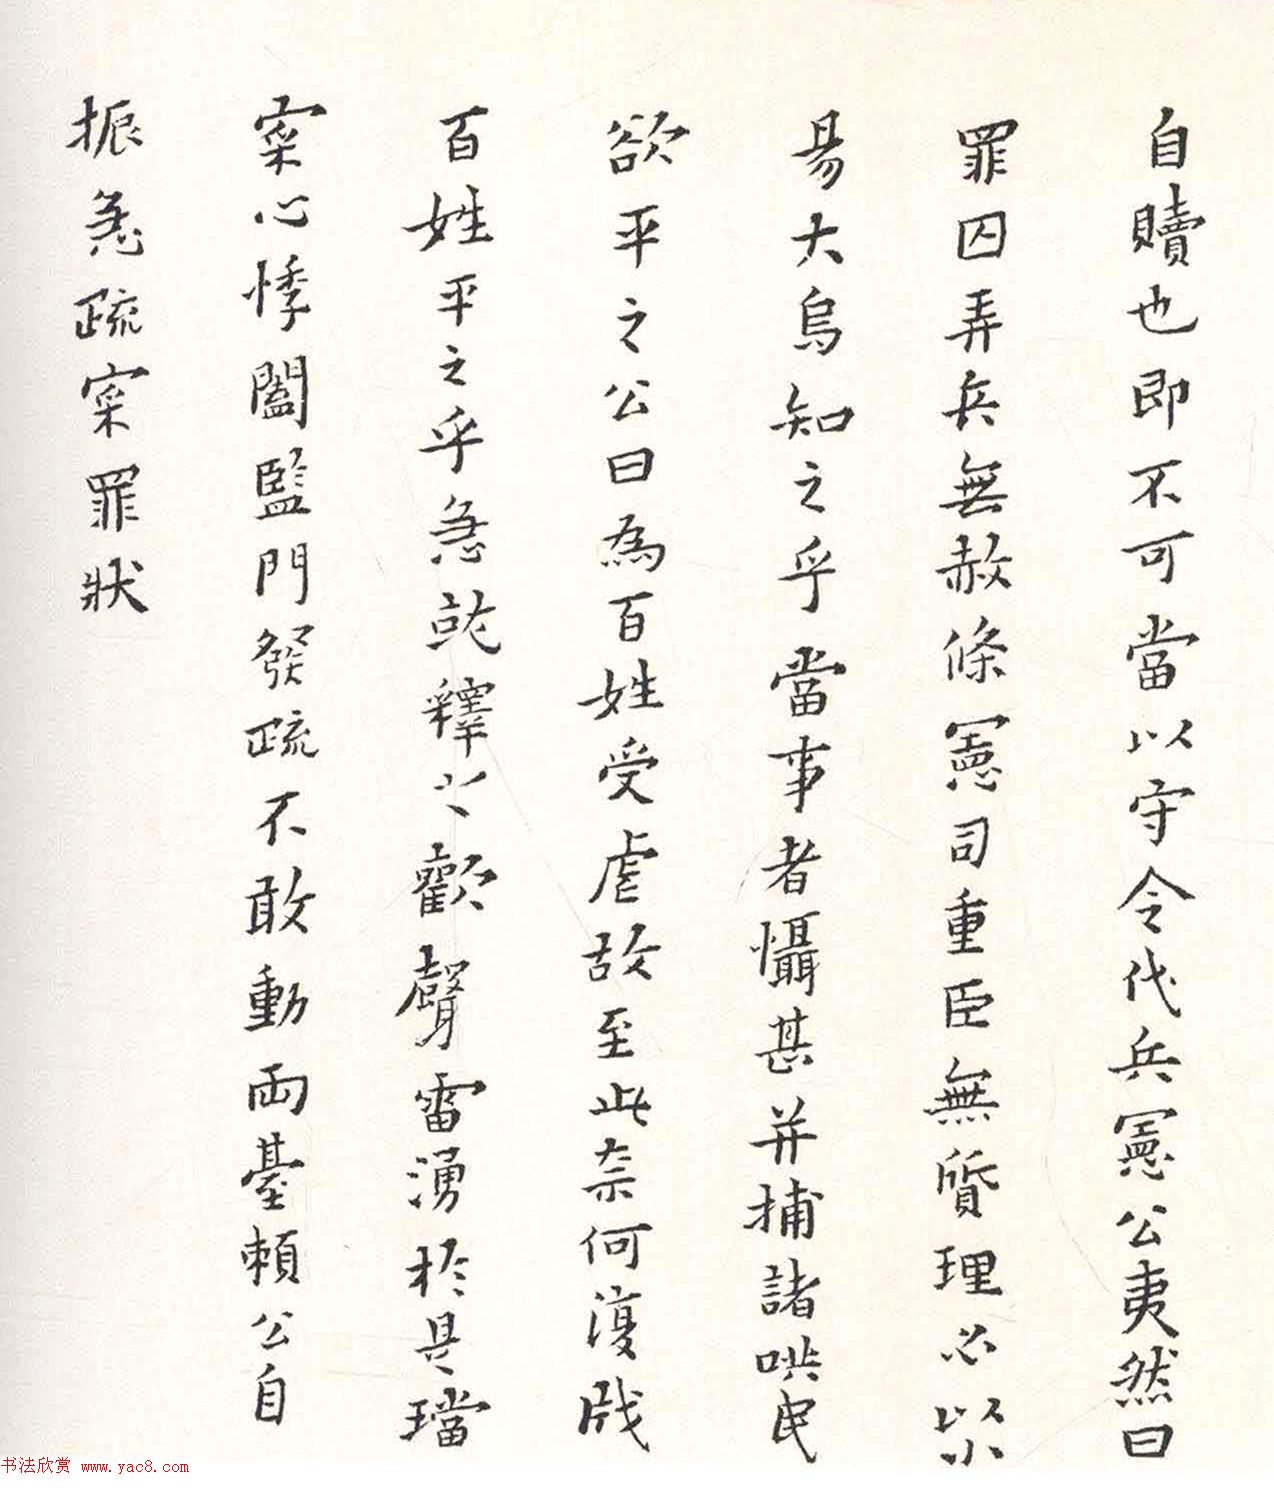 自贖也即不可當以守令代兵憲公夷然曰
罪囚弄兵無赦條憲司重臣無質理必以
易大烏知之乎當事者懾甚并捕諸哄民
欲平之公曰為百姓受虐故至此奈何復戕
百姓平之乎急就釋之歡聲雷湧於是璫
寀心悸闔監門發疏不敢動兩臺賴公自
振急疏寀罪狀
书法欣赏 www.yac8.com